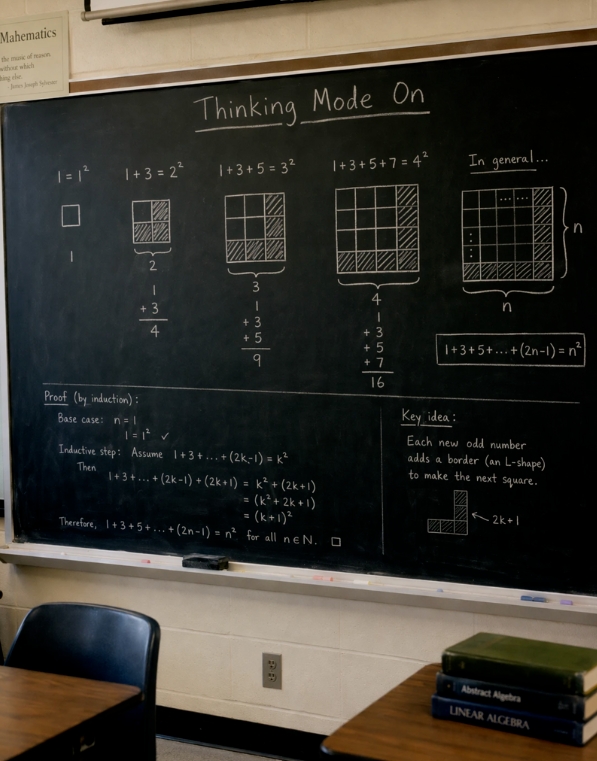 Mahematics
the music of reason.
without which
thing else.
- James Joseph Sylvester
Thinking Mode On
1 = 1²
1
1 + 3 = 2²
2
1
+ 3
4
1 + 3 + 5 = 3²
3
1
+ 3
+ 5
9
1 + 3 + 5 + 7 = 4²
4
1
+ 3
+ 5
+ 7
16
In general...
n
n
1 + 3 + 5 + ... + (2n-1) = n²
Proof (by induction):
Base case: n = 1
1 = 1² ✓
Inductive step: Assume 1 + 3 + ... + (2k-1) = k²
Then
1 + 3 + ... + (2k-1) + (2k+1) = k² + (2k+1)
= (k² + 2k + 1)
= (k+1)²
Therefore, 1 + 3 + 5 + ... + (2n-1) = n² for all n ∈ N. □
Key idea:
Each new odd number
adds a border (an L-shape)
to make the next square.
2k+1
Abstract Algebra
LINEAR ALGEBRA